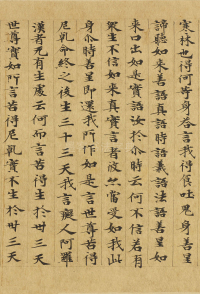 寒林也得何等身答言我得食吐鬼身善星
諦聽如來善語真語時語義語法語善星如
來口出如是實語汝於尒時云何不信若有
衆生不信如來真實言者彼亦當受如我此
身尒時善星即還我所作如是言世尊苦得
尼乹命終之後生三十三天我言癡人阿羅
漢者无有生處云何而言苦得生於卅三天
世尊實如所言苦得尼乹實不生於卅三天